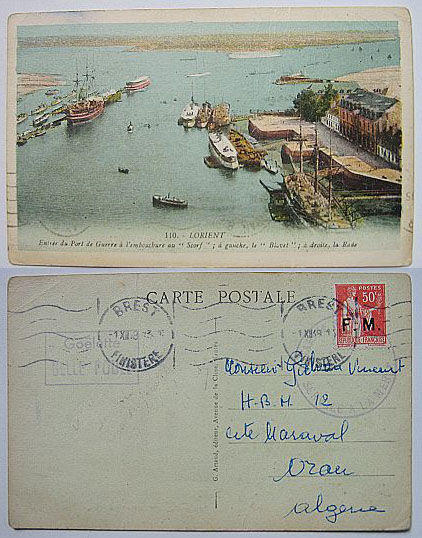 110. - LORIENT
Entrée du Port de Guerre à l'embouchure au "Scorf" ; à gauche, le "Blavet" ; à droite, la Rade
CARTE POSTALE
BREST
FINISTERE
Goélette
BELLE POULE
BREST
FINISTERE
POSTES
50c
F.M.
REPUBLIQUE FRANÇAISE
G. Artaud, éditeur, Avenue de la Close, Nantes
Monsieur Vincent
H.B.M 12
Cité Maraval
Oran
Algérie